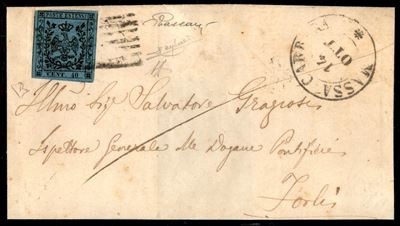 POSTE ESTENSI
CENT. 40
MASSA CARRARA
14
OTT
Illmo Sigr Salvatore Gragnosi
Ispettore Generale Me Dogane Pontificie
Forlì